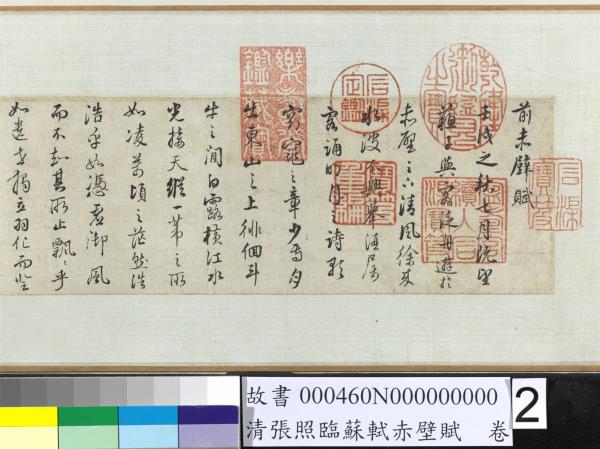 前赤壁賦
壬戌之秋七月既望
蘇子與客泛舟遊於
赤壁之下清風徐來
水波不興舉酒屬
客誦明月之詩歌
窈窕之章少焉月
出東山之上徘徊斗
牛之間白露橫江水
光接天縱一葦之所
如凌萬頃之茫然浩
浩乎如憑虛御風
而不知其所止飄〻乎
如遺世獨立羽化而登
石渠寶笈
乾隆御覽之寶
石渠定鑑
寶笈重編
故書 000460N000000000
清張照臨蘇軾赤壁賦 卷
2